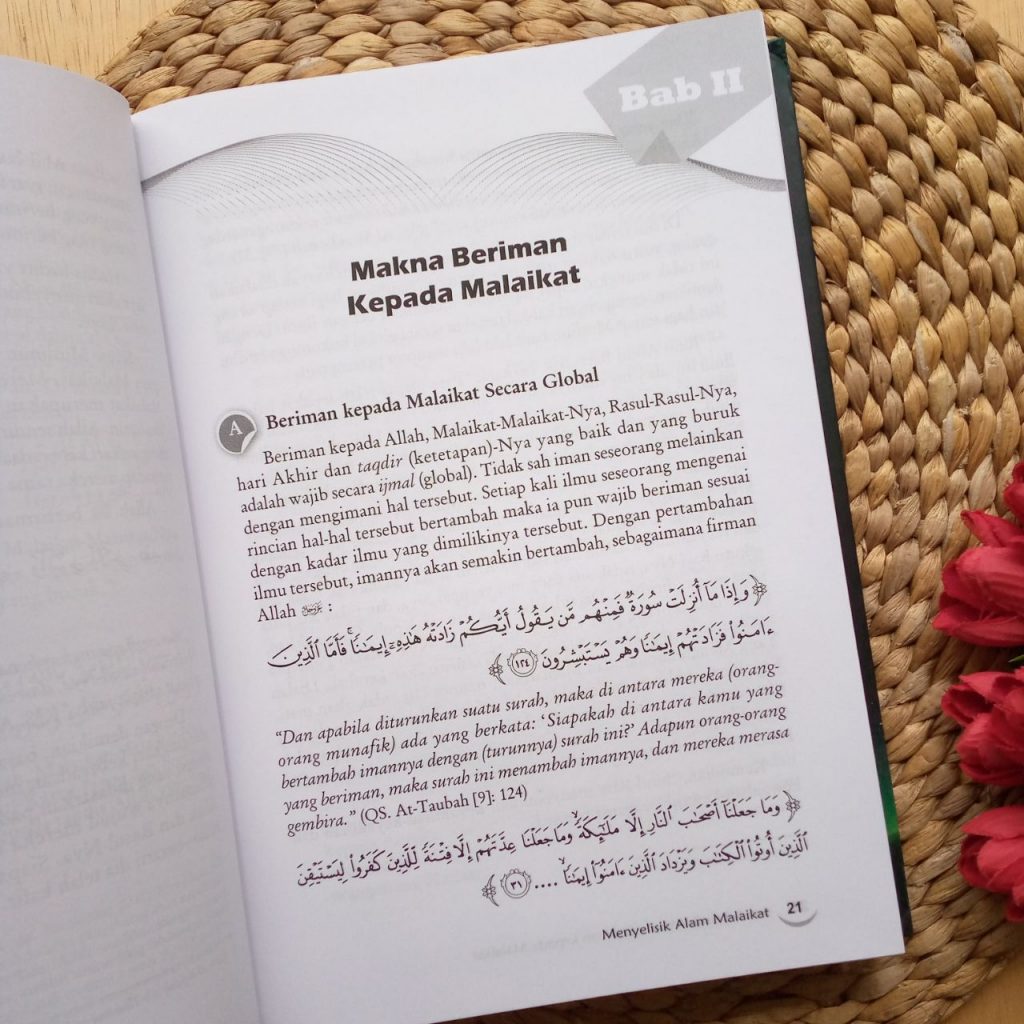 Bab II
Makna Beriman
Kepada Malaikat
A
Beriman kepada Malaikat Secara Global
Beriman kepada Allah, Malaikat-Malaikat-Nya, Rasul-Rasul-Nya,
hari Akhir dan taqdir (ketetapan)-Nya yang baik dan yang buruk
adalah wajib secara ijmal (global). Tidak sah iman seseorang melainkan
dengan mengimani hal tersebut. Setiap kali ilmu seseorang mengenai
rincian hal-hal tersebut bertambah maka ia pun wajib beriman sesuai
dengan kadar ilmu yang dimilikinya tersebut. Dengan pertambahan
ilmu tersebut, imannya akan semakin bertambah, sebagaimana firman
Allah :
﴿ وَإِذَا مَآ أُنزِلَتْ سُورَةٌ فَمِنْهُم مَّن يَقُولُ أَيُّكُمْ زَادَتْهُ هَٰذِهِۦٓ إِيمَٰنًا ۚ فَأَمَّا ٱلَّذِينَ
ءَامَنُوا۟ فَزَادَتْهُمْ إِيمَٰنًا وَهُمْ يَسْتَبْشِرُونَ ١٢٤ ﴾
“Dan apabila diturunkan suatu surah, maka di antara mereka (orang-
orang munafik) ada yang berkata: ‘Siapakah di antara kamu yang
bertambah imannya dengan (turunnya) surah ini?’ Adapun orang-orang
yang beriman, maka surah ini menambah imannya, dan mereka merasa
gembira.” (QS. At-Taubah [9]: 124)
﴿ وَمَا جَعَلْنَآ أَصْحَٰبَ ٱلنَّارِ إِلَّا مَلَٰٓئِكَةً ۙ وَمَا جَعَلْنَا عِدَّتَهُمْ إِلَّا فِتْنَةً لِّلَّذِينَ كَفَرُوا۟ لِيَسْتَيْقِنَ
ٱلَّذِينَ أُوتُوا۟ ٱلْكِتَٰبَ وَيَزْدَادَ ٱلَّذِينَ ءَامَنُوٓا۟ إِيمَٰنًا ۙ .... ٣١ ﴾
Menyelisik Alam Malaikat 21